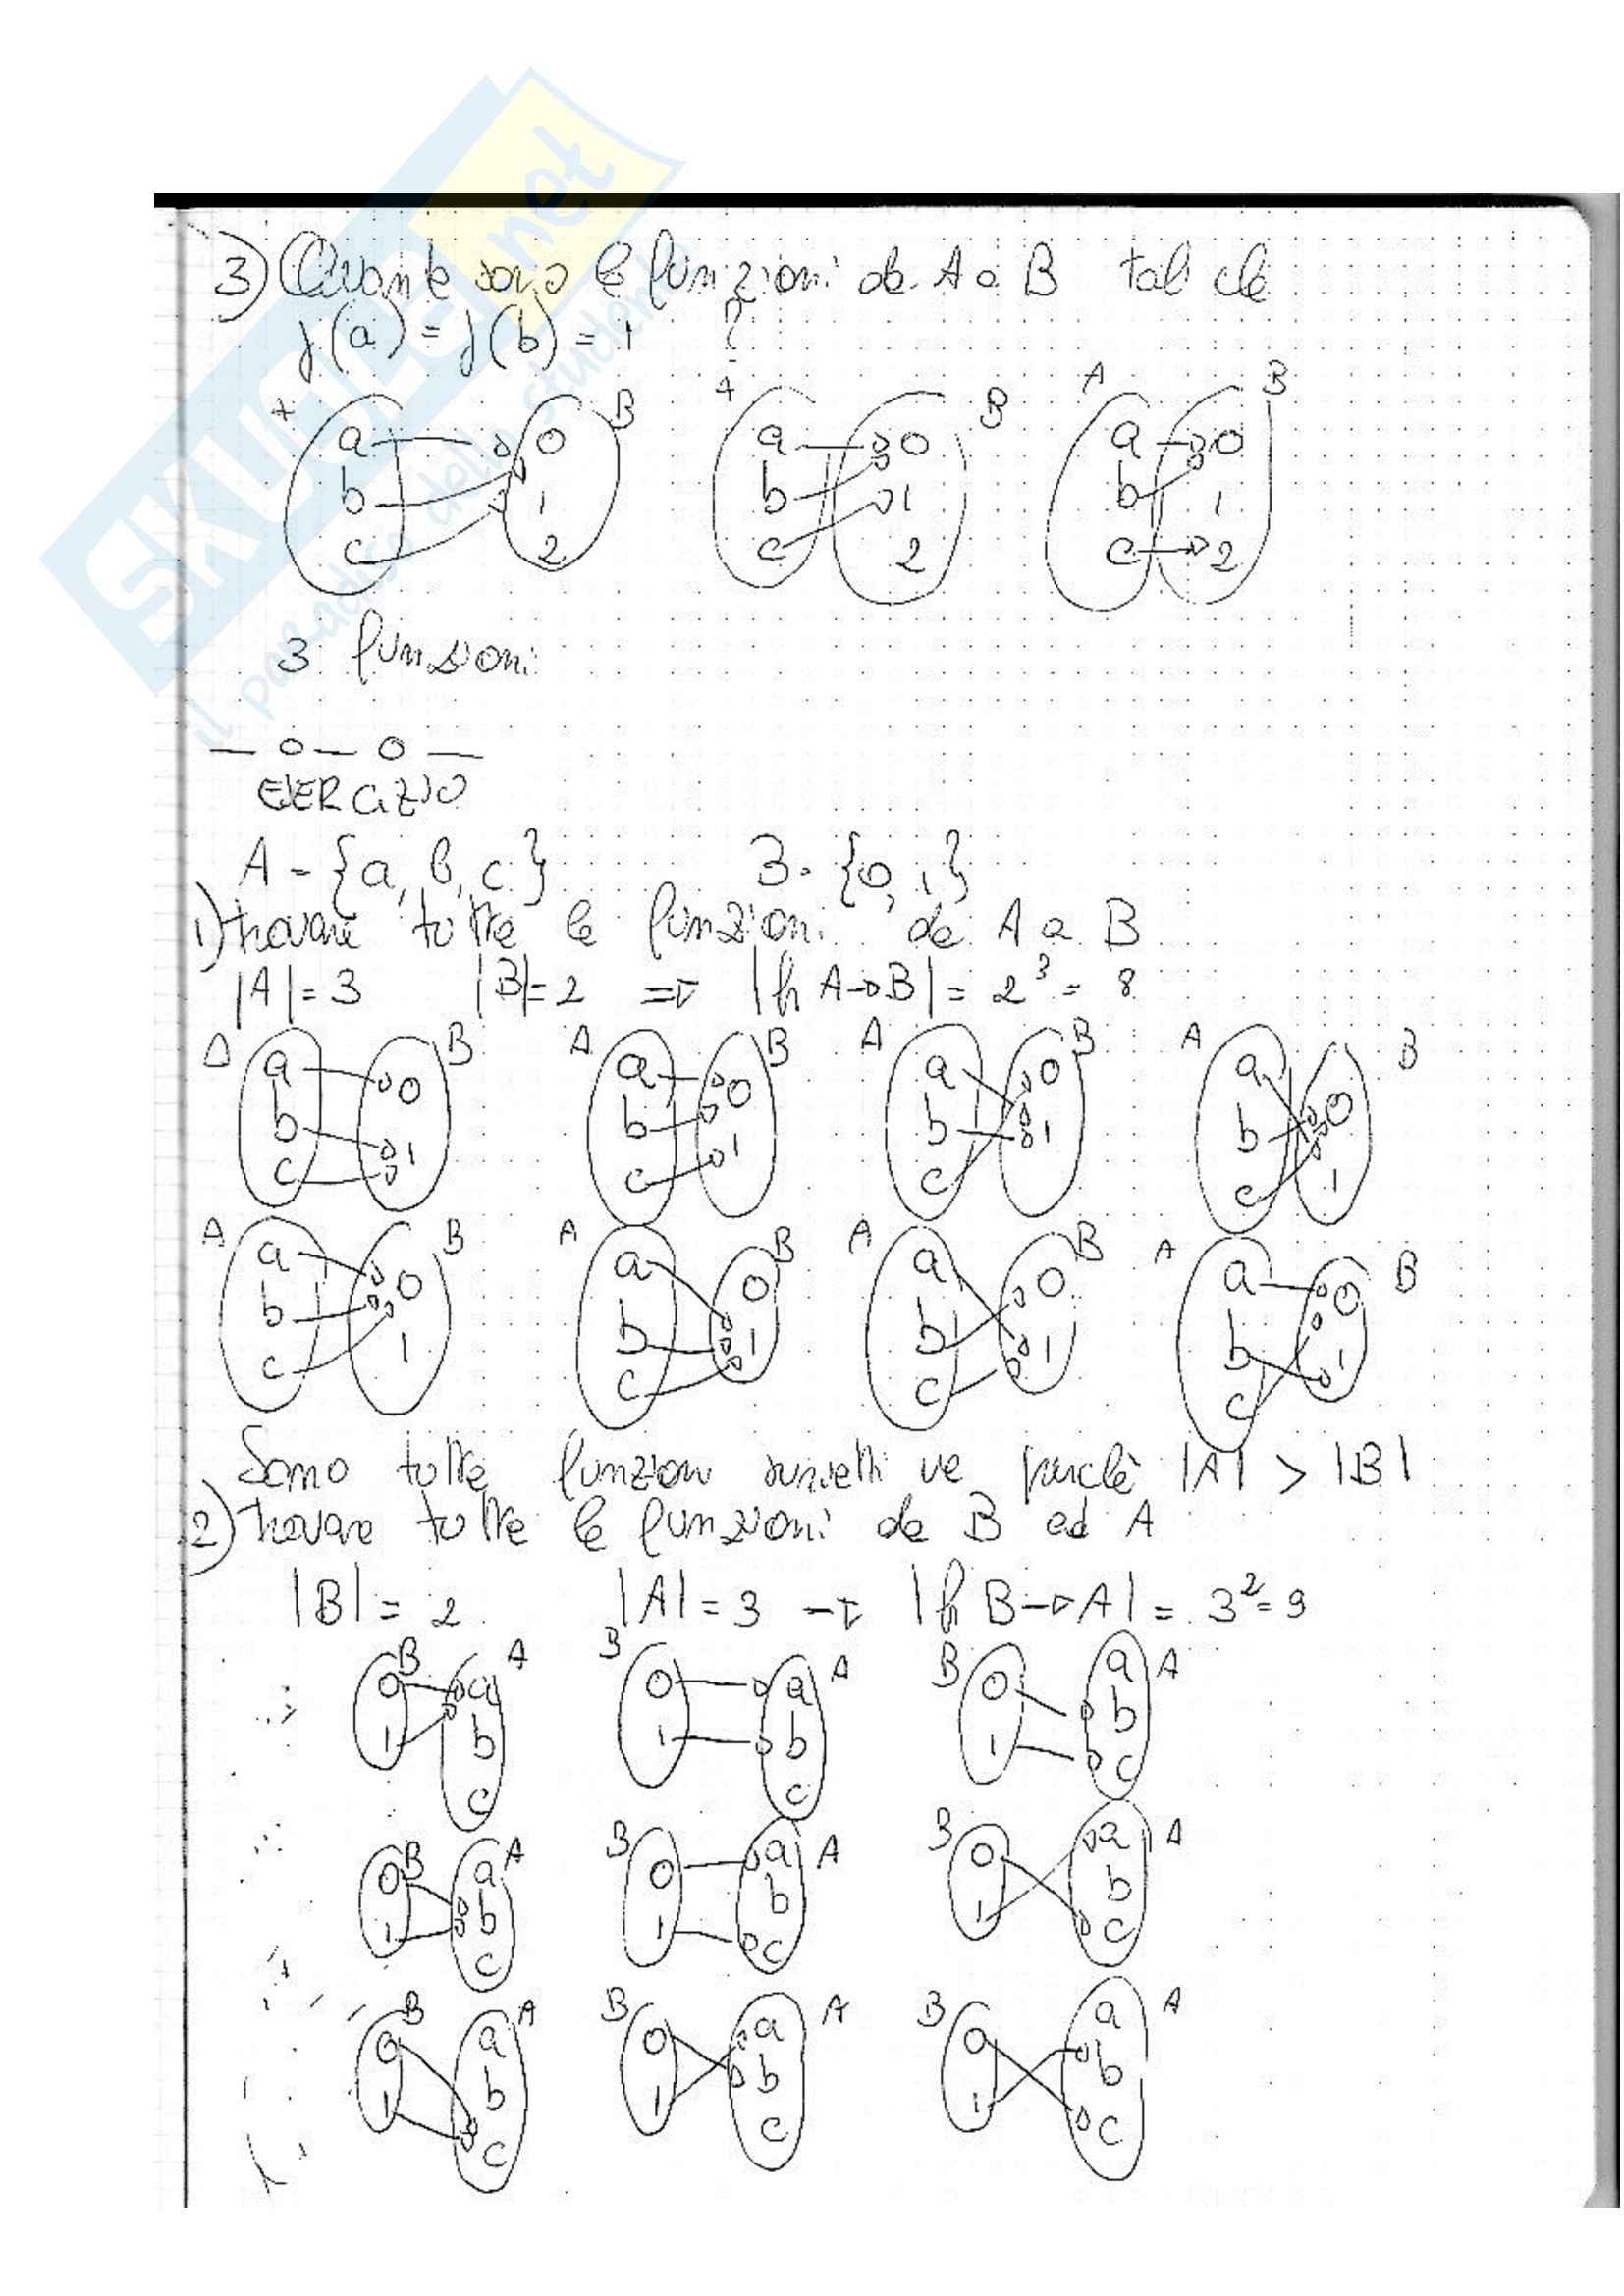 SKUOLA.net
il paradiso dello studente
3) Quante sono le funzioni da A a B tali che
f(a) = f(b) = 1 ?
A B A B A B
a 0 a 0 a 0
b 1 b 1 b 1
c 2 c 2 c 2
3 funzioni
— o — o —
ESERCIZIO
A = {a, b, c} B = {0, 1}
1) trovare tutte le funzioni da A a B
|A| = 3 |B| = 2 => |f: A→B| = 2³ = 8
A B A B A B A B
a 0 a 0 a 0 a 0
b 1 b 1 b 1 b 1
c c c c
A B A B A B A B
a 0 a 0 a 0 a 0
b 1 b 1 b 1 b 1
c c c c
Sono tutte funzioni suriettive perchè |A| > |B|
2) trovare tutte le funzioni da B ad A
|B| = 2 |A| = 3 → |f: B→A| = 3² = 9
B A B A B A
0 a 0 a 0 a
1 b 1 b 1 b
c c c
B A B A B A
0 a 0 a 0 a
1 b 1 b 1 b
c c c
B A B A B A
0 a 0 a 0 a
1 b 1 b 1 b
c c c